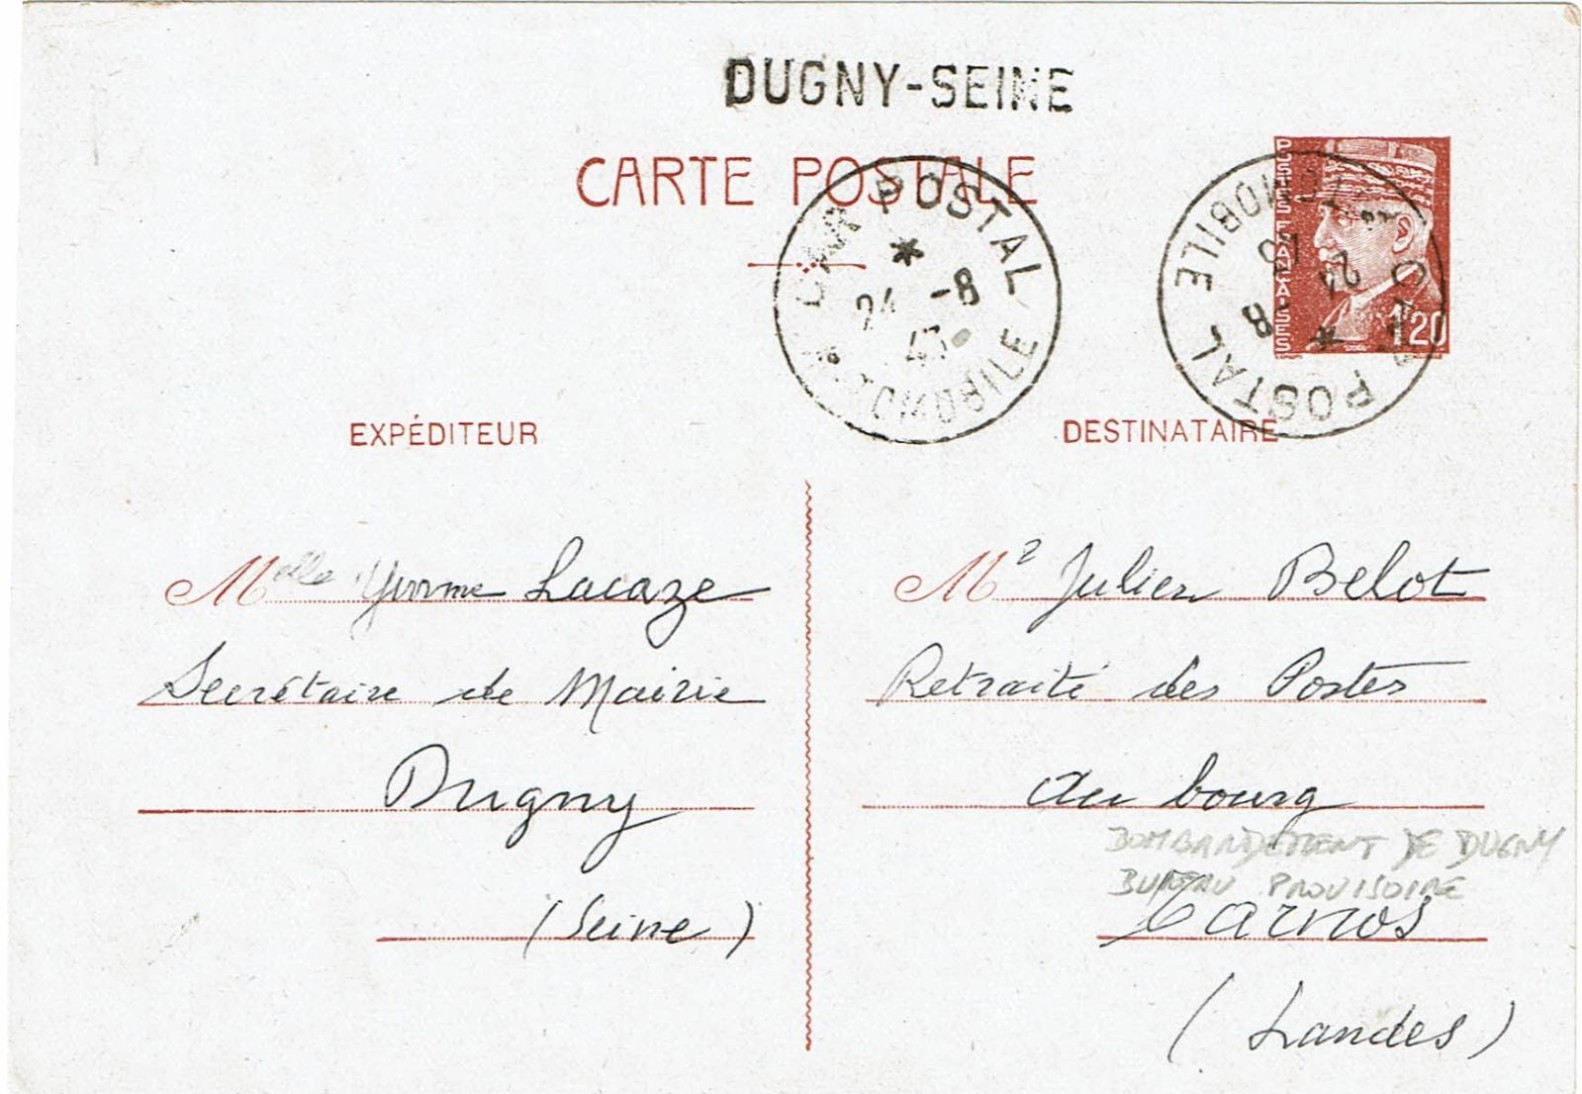 DUGNY-SEINE
CARTE POSTALE
CAR POSTAL
*
24 -8
43
AUTOMOBILE
POSTES FRANÇAISES
1,20
CAR POSTAL
*
24 -8
43
AUTOMOBILE
EXPÉDITEUR
Melle Yvonne Lacaze
Secrétaire de Mairie
Dugny
(Seine)
DESTINATAIRE
Mr Julien Belot
Retraité des Postes
au bourg
BOMBARDEMENT DE DUGNY
BUREAU PROVISOIRE
Tarnos
(Landes)